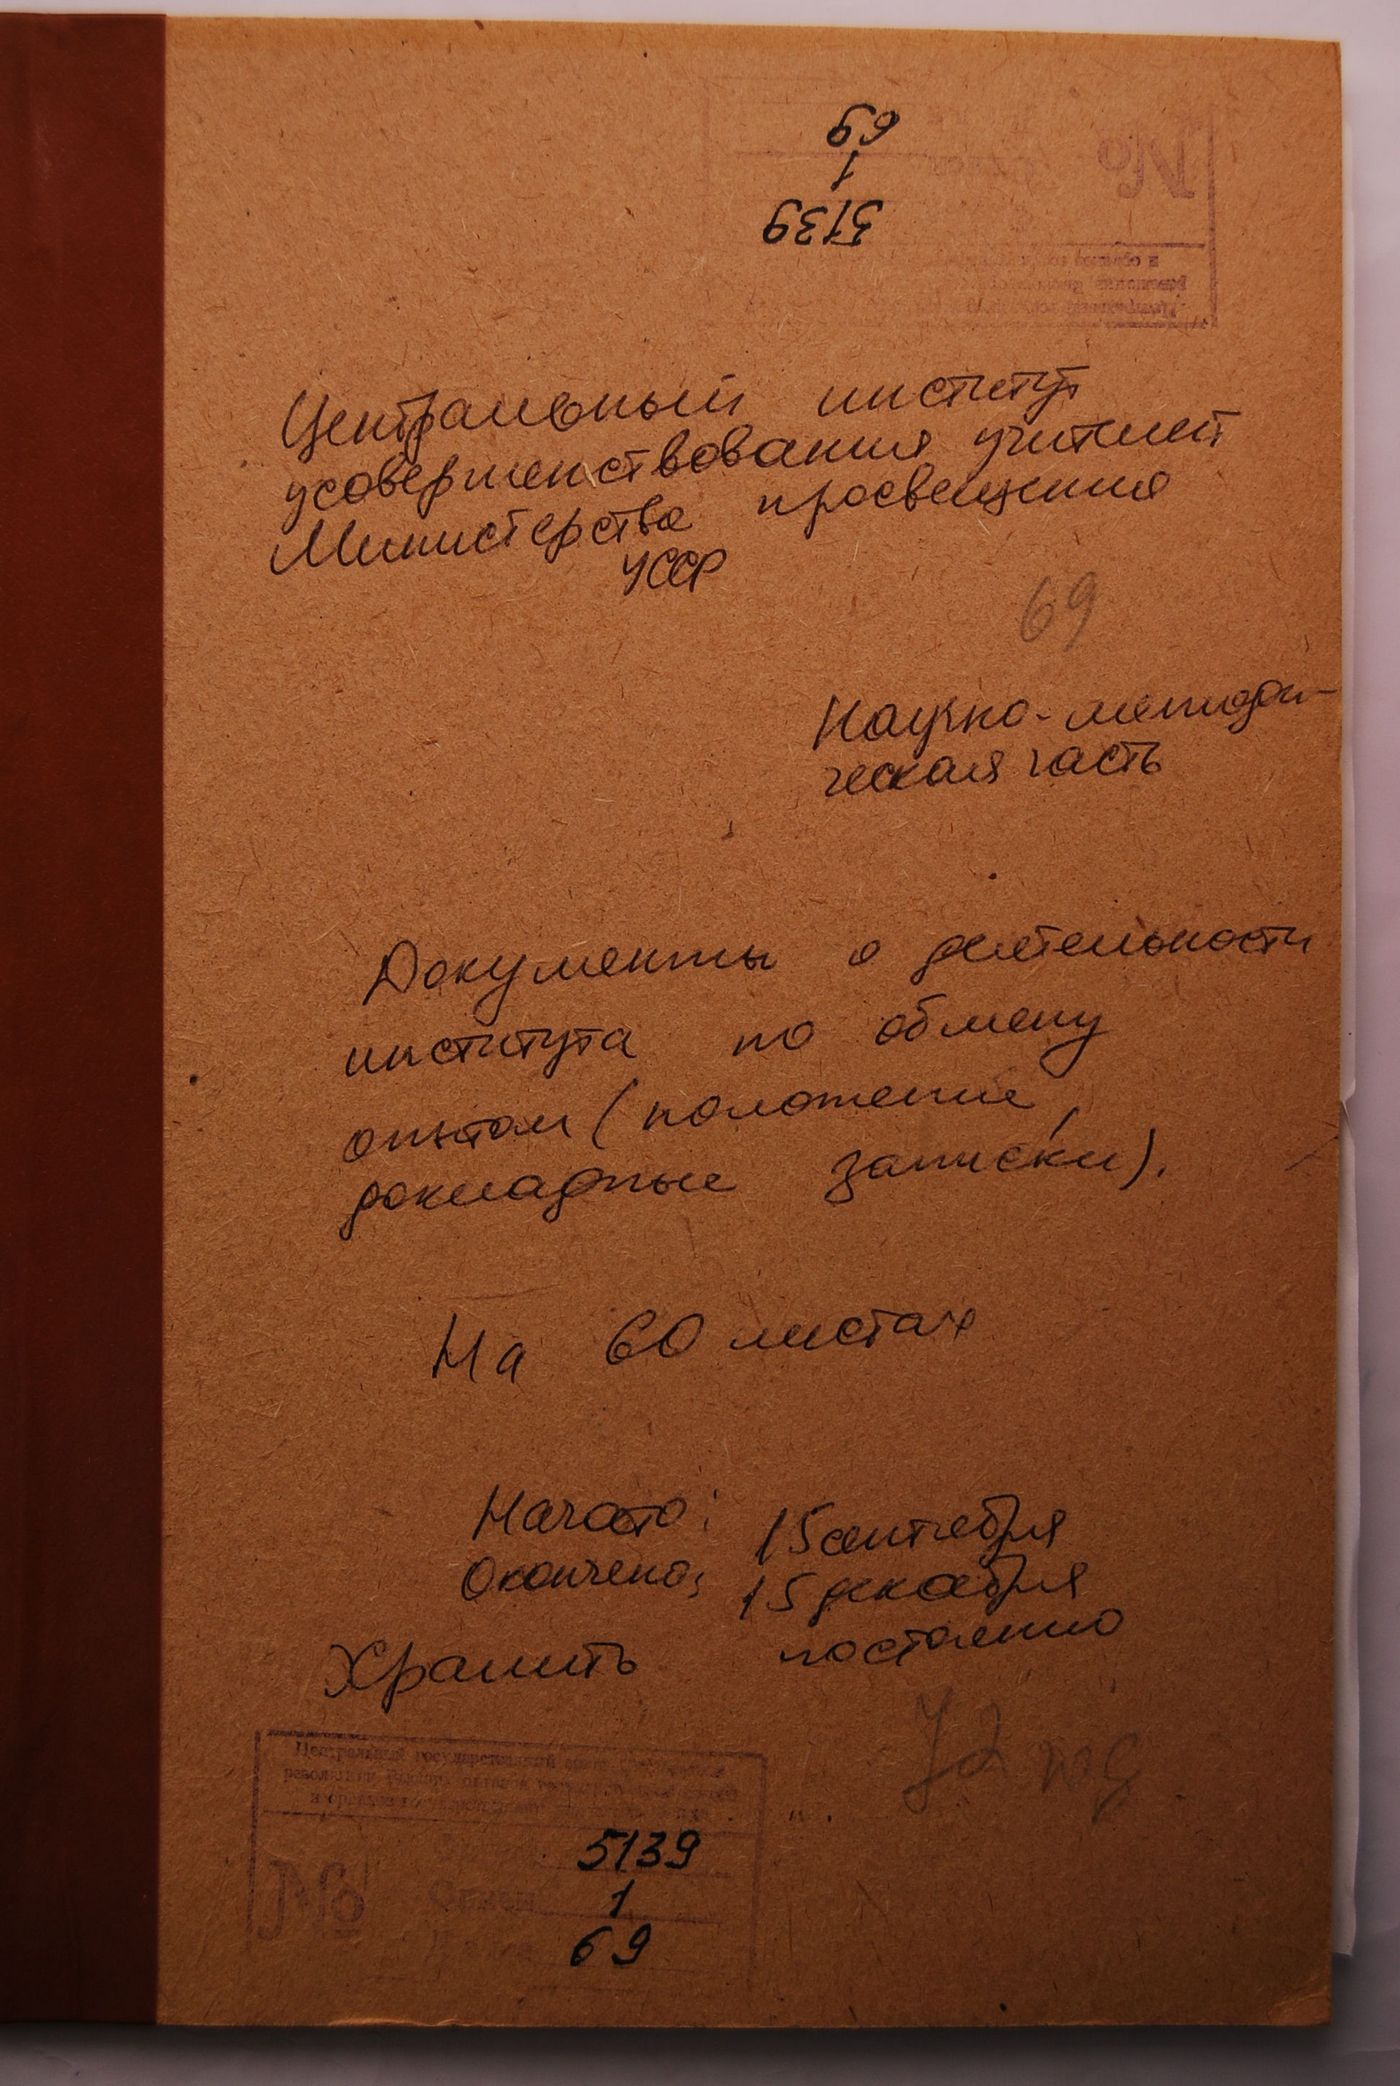 69
1
5139
№
Центральный институт
усовершенствования учителей
Министерства просвещения
УССР
69
Научно-методи-
ческая часть
Документы о деятельности
института по обмену
опытом (положение,
докладные записки).
На 60 листах
Начато: 15 сентября
Окончено: 15 декабря
Хранить постоянно
год
Центральный государственный архив
революции
и органов государственного
5139
№
1
69